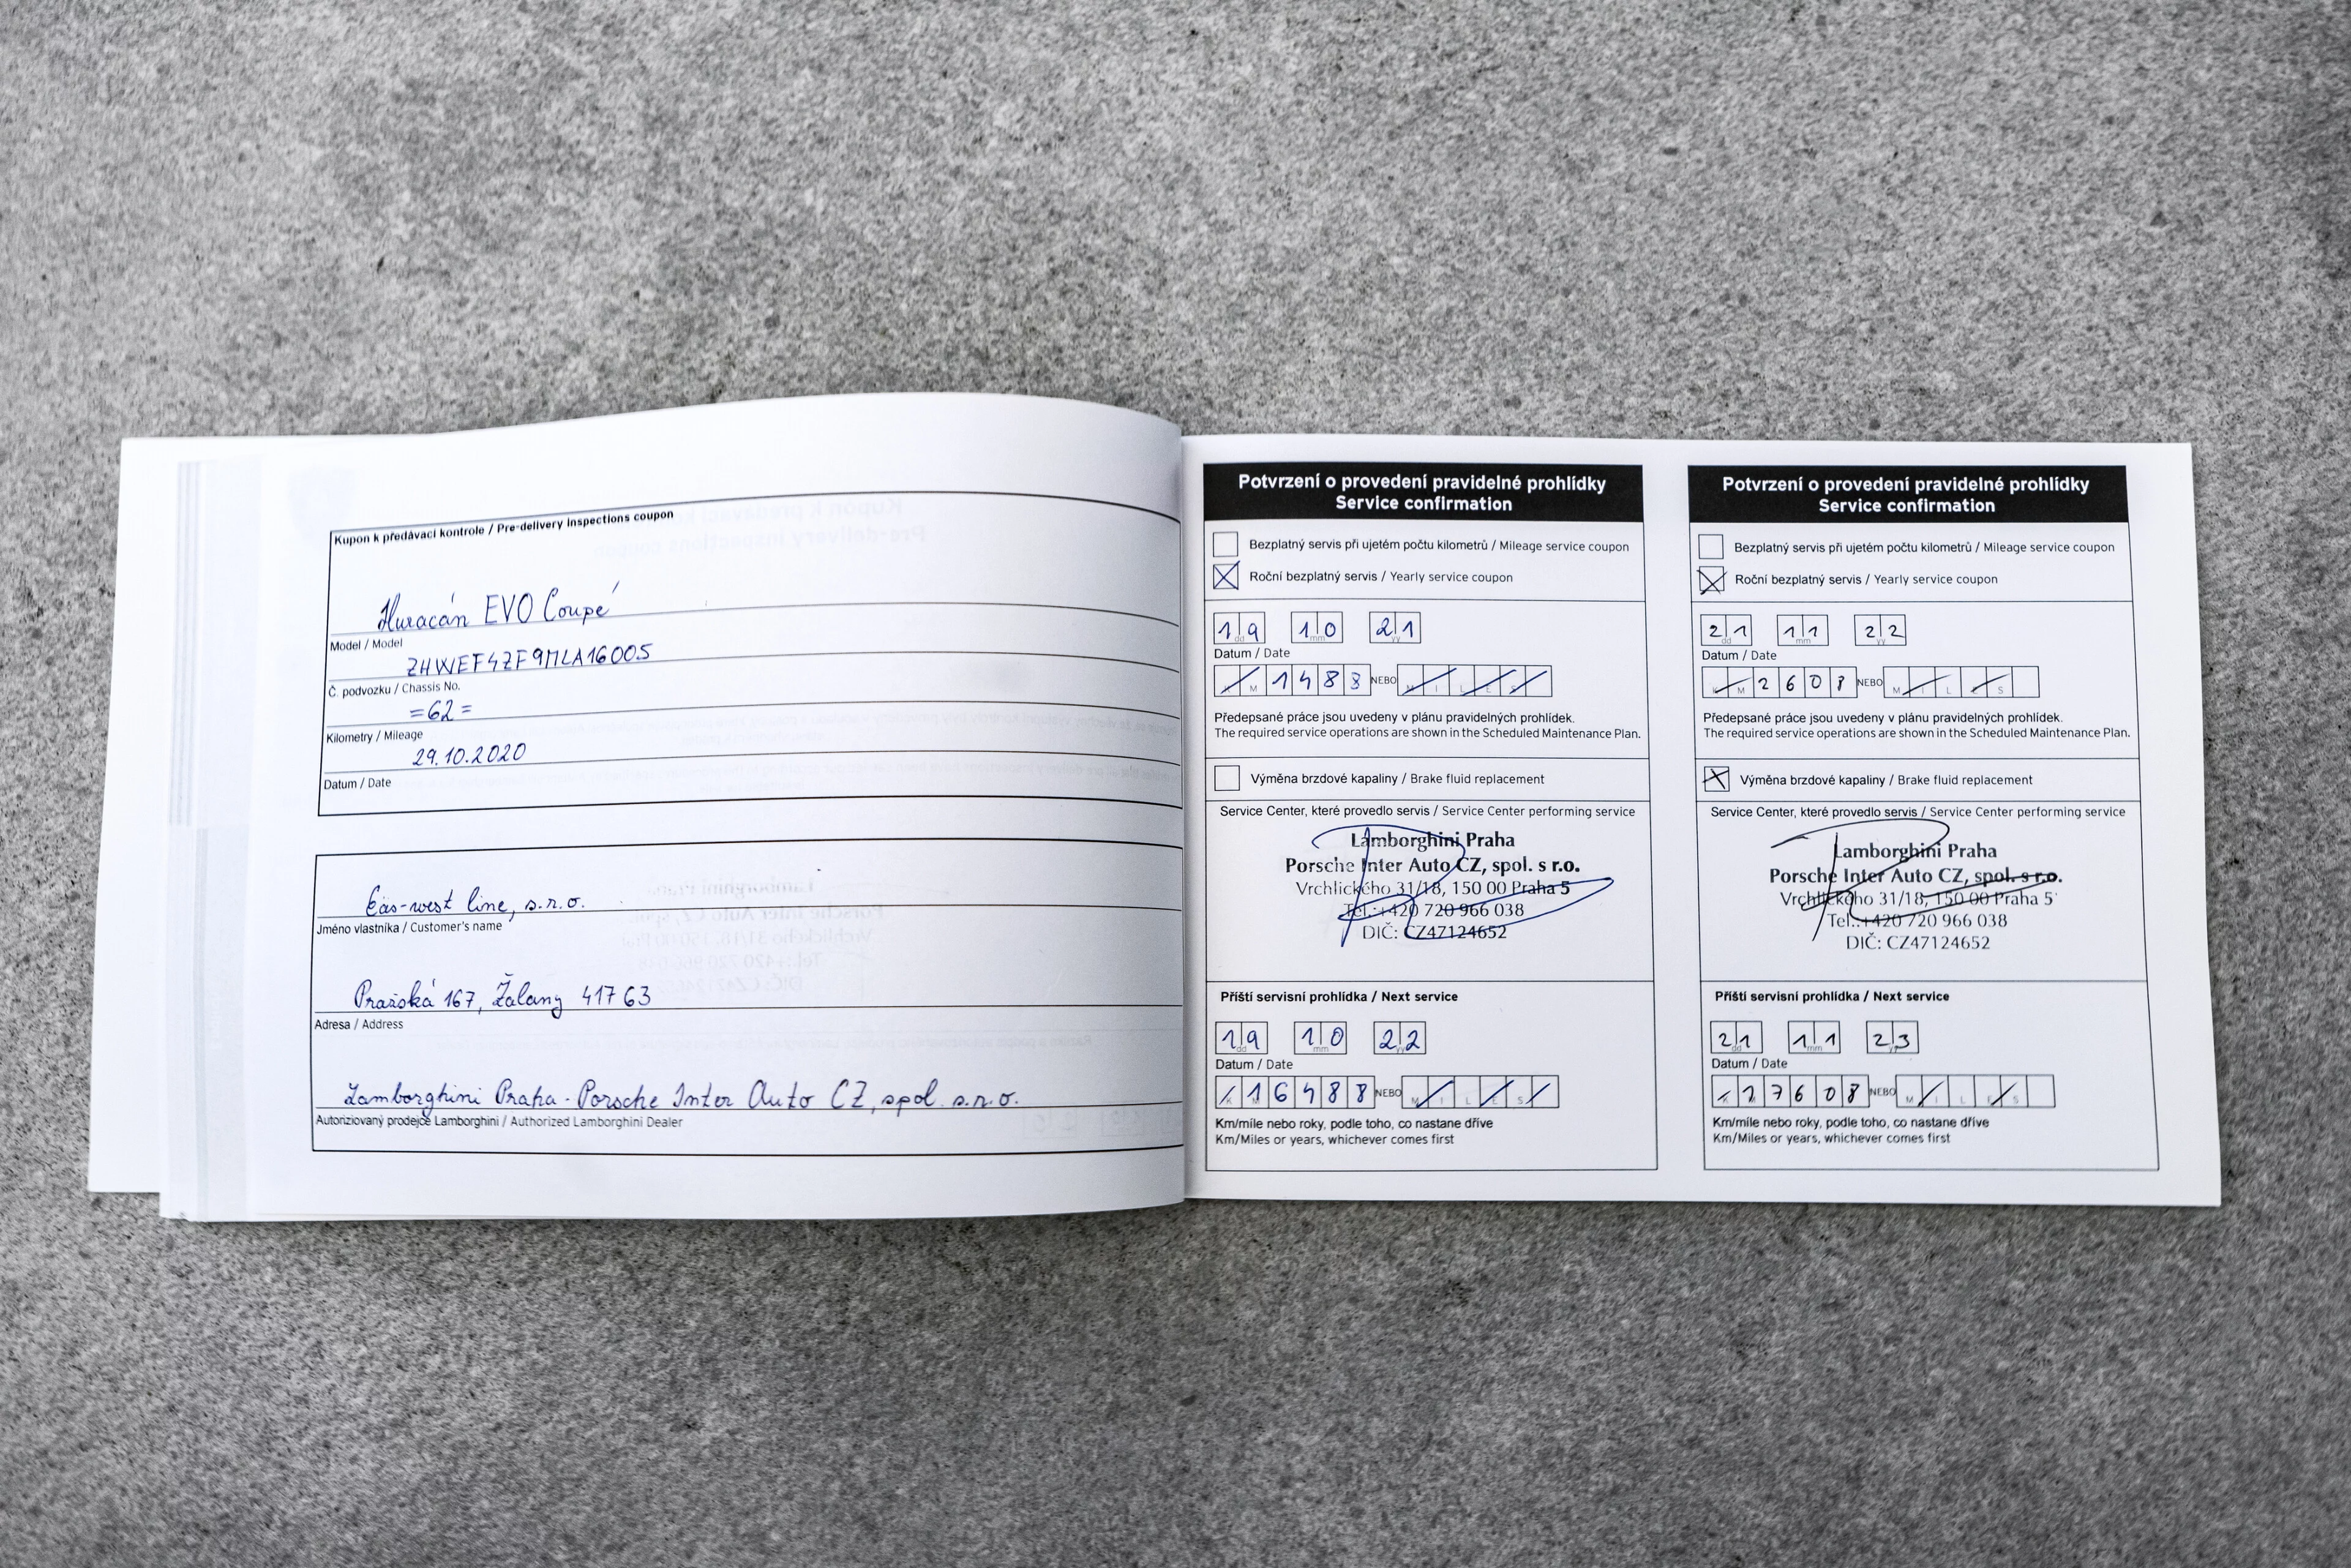 Kupon k předávací kontrole / Pre-delivery inspections coupon
Huracán EVO Coupé
Model / Model
ZHWEF4ZF9MLA16005
Č. podvozku / Chassis No.
=62=
Kilometry / Mileage
29.10.2020
Datum / Date
Eas-west line, s.r.o.
Jméno vlastníka / Customer's name
Pražská 167, Žalany 417 63
Adresa / Address
Lamborghini Praha - Porsche Inter Auto CZ, spol. s.r.o.
Autoriziovaný prodejce Lamborghini / Authorized Lamborghini Dealer
Potvrzení o provedení pravidelné prohlídky
Service confirmation
Bezplatný servis při ujetém počtu kilometrů / Mileage service coupon
Roční bezplatný servis / Yearly service coupon
19 10 21
dd mm yy
Datum / Date
K M 1483 NEBO M I L E S
Předepsané práce jsou uvedeny v plánu pravidelných prohlídek.
The required service operations are shown in the Scheduled Maintenance Plan.
Výměna brzdové kapaliny / Brake fluid replacement
Service Center, které provedlo servis / Service Center performing service
Lamborghini Praha
Porsche Inter Auto CZ, spol. s r.o.
Vrchlického 31/18, 150 00 Praha 5
Tel.: +420 720 966 038
DIČ: CZ47124652
Příští servisní prohlídka / Next service
19 10 22
dd mm
Datum / Date
K 16488 NEBO M I L E S
Km/míle nebo roky, podle toho, co nastane dříve
Km/Miles or years, whichever comes first
Potvrzení o provedení pravidelné prohlídky
Service confirmation
Bezplatný servis při ujetém počtu kilometrů / Mileage service coupon
Roční bezplatný servis / Yearly service coupon
21 11 22
dd mm yy
Datum / Date
K M 2608 NEBO M I L E S
Předepsané práce jsou uvedeny v plánu pravidelných prohlídek.
The required service operations are shown in the Scheduled Maintenance Plan.
Výměna brzdové kapaliny / Brake fluid replacement
Service Center, které provedlo servis / Service Center performing service
Lamborghini Praha
Porsche Inter Auto CZ, spol. s r.o.
Vrchlického 31/18, 150 00 Praha 5
Tel.: +420 720 966 038
DIČ: CZ47124652
Příští servisní prohlídka / Next service
21 11 23
dd mm yy
Datum / Date
K 17608 NEBO M I L E S
Km/míle nebo roky, podle toho, co nastane dříve
Km/Miles or years, whichever comes first